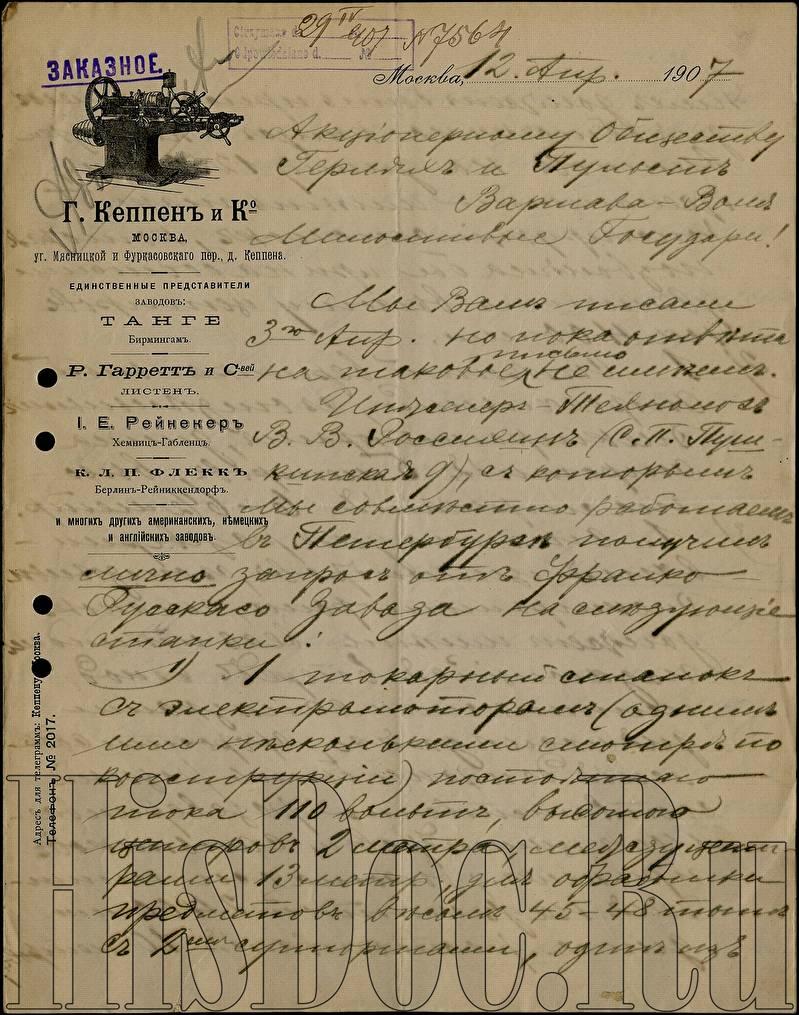 29 IV 907 N 7564
ЗАКАЗНОЕ.
Москва, 12. Апр. 1907
Акціонерному Обществу
Герляхъ и Пульстъ
Варшава – Воля
Милостивые Государи!
Г. Кеппенъ и Ко
МОСКВА,
уг. Мясницкой и Фуркасовскаго пер., д. Кеппена.
ЕДИНСТВЕННЫЕ ПРЕДСТАВИТЕЛИ
ЗАВОДОВЪ:
ТАНГЕ
Бирмингамъ.
Р. Гарреттъ и С-вей
ЛИСТЕНЪ.
І. Е. Рейнекеръ
Хемницъ-Габленцъ.
К. Л. П. ФЛЕККЪ
Берлинъ-Рейниккендорфъ.
и многихъ другихъ американскихъ, нѣмецкихъ
и англійскихъ заводовъ.
Адресъ для телеграммъ: Кеппену Москва.
Телефонъ № 2017.
Мы Вамъ писали
3го Апр. но пока отвѣта
на таковое письмо не имѣемъ.
Инженеръ-Технологъ
В. В. Россиянъ (С. П. Пуш-
кинская 9), съ которымъ
мы совмѣстно работаемъ
въ Петербургѣ получилъ
лично запросъ отъ Франко
Русскаго Завода на слѣдующіе
станки:
1) 1 токарный станокъ
съ электромоторомъ (однимъ
или нѣсколькими смотря по
конструкціи) постояннаго
тока 110 вольтъ, высотою
центровъ 2 метра между цент
рами 13 метр, для обрасточки
предметовъ вѣсомъ 45-48 тоннъ
съ 2мя суппортами, одинъ изъ
HisDoc.Ru